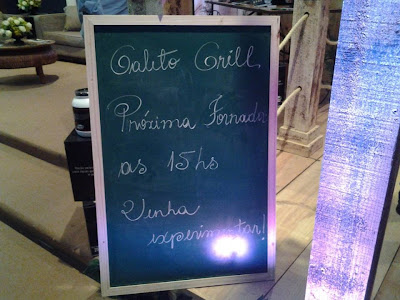 Galeto Grill
Próxima Fornada
as 15hs
Venha
experimentar!